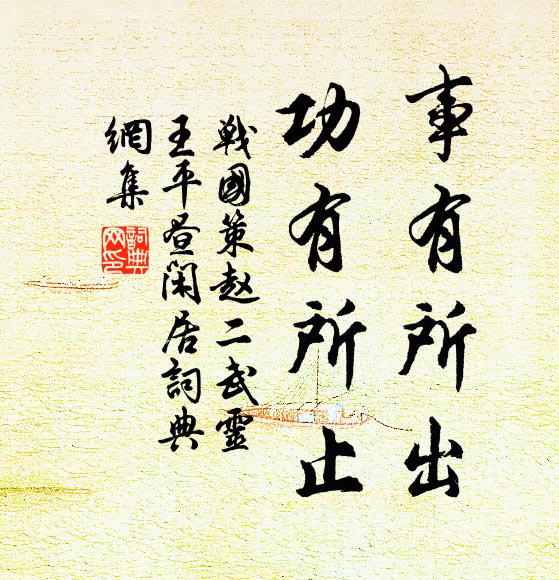 事有所出
功有所止
戰國策赵二武靈
王平昼閑居詞典
網集
詞典
网印